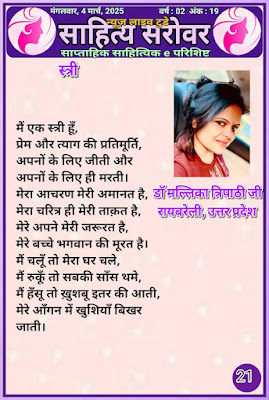 मंगलवार, 4 मार्च, 2025
वर्ष : 02 अंक : 19
न्यूज़ लाइव टुडे
साहित्य सरोवर
साप्ताहिक साहित्यिक e परिशिष्ट
स्त्री
मैं एक स्त्री हूँ,
प्रेम और त्याग की प्रतिमूर्ति,
अपनों के लिए जीती और
अपनों के लिए ही मरती।
मेरा आचरण मेरी अमानत है,
मेरा चरित्र ही मेरी ताक़त है,
मेरे अपने मेरी जरूरत है,
मेरे बच्चे भगवान की मूरत है।
मैं चलूँ तो मेरा घर चले,
मैं रुकूँ तो सबकी साँस थमे,
मैं हँसू तो ख़ुशबू इतर की आती,
मेरे आँगन में खुशियाँ बिखर
जाती।
डॉ मल्लिका त्रिपाठी जी
रायबरेली, उत्तर प्रदेश
21